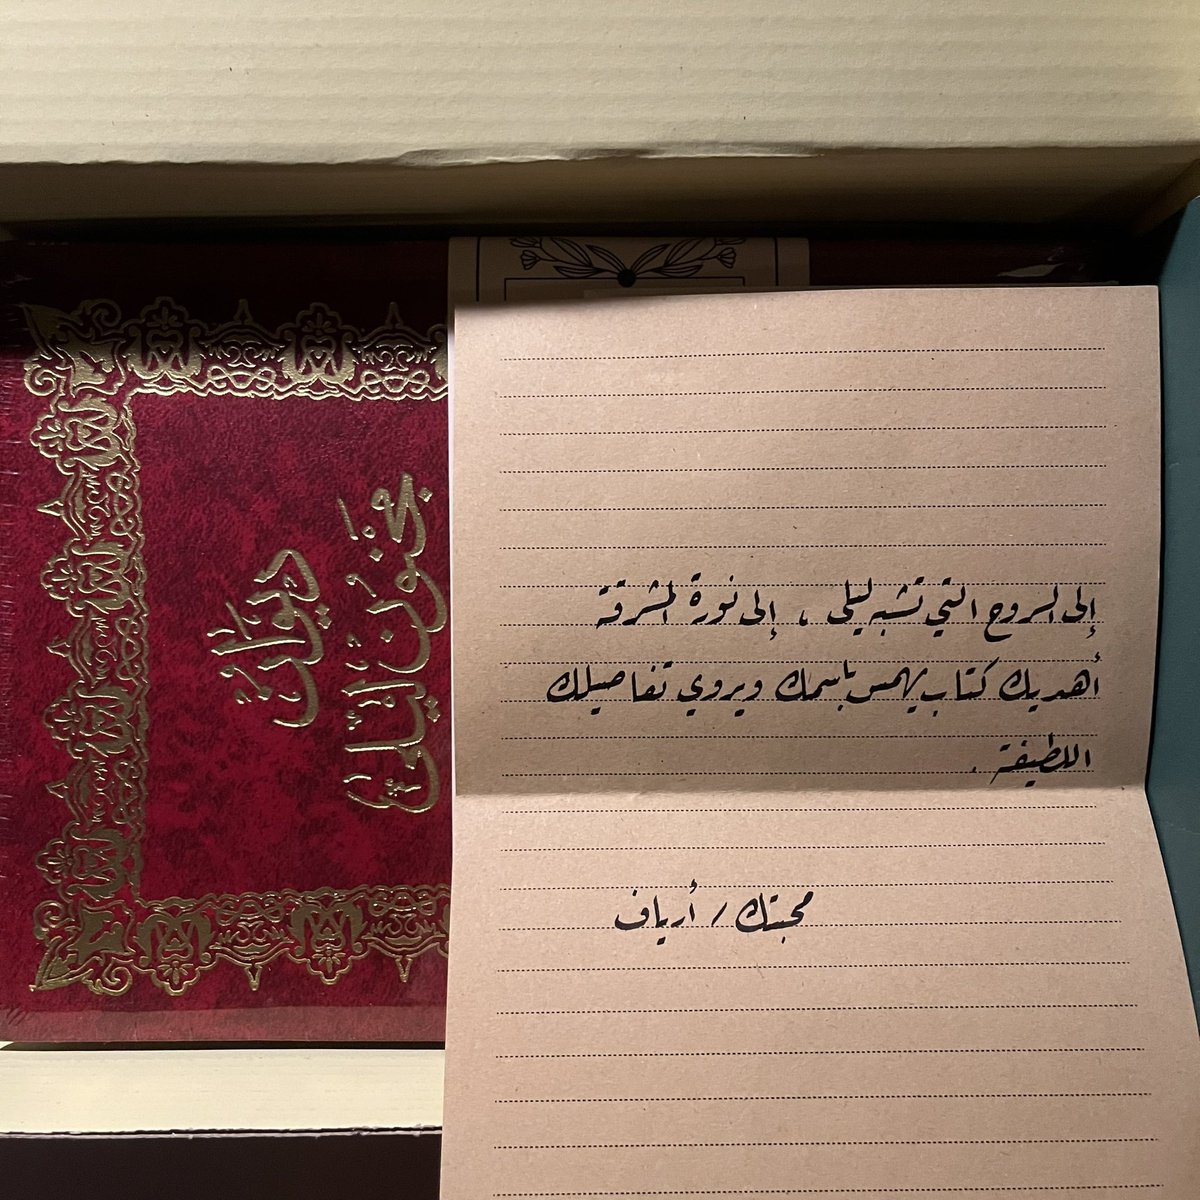 ديوان
مجنون ليلى
إلى الروح التي تشبه ليلى ، إلى نورة المشرقة
أهديك كتاب يهمس باسمك ويروي تفاصيلك
اللطيفة .
محبتك / أرياف